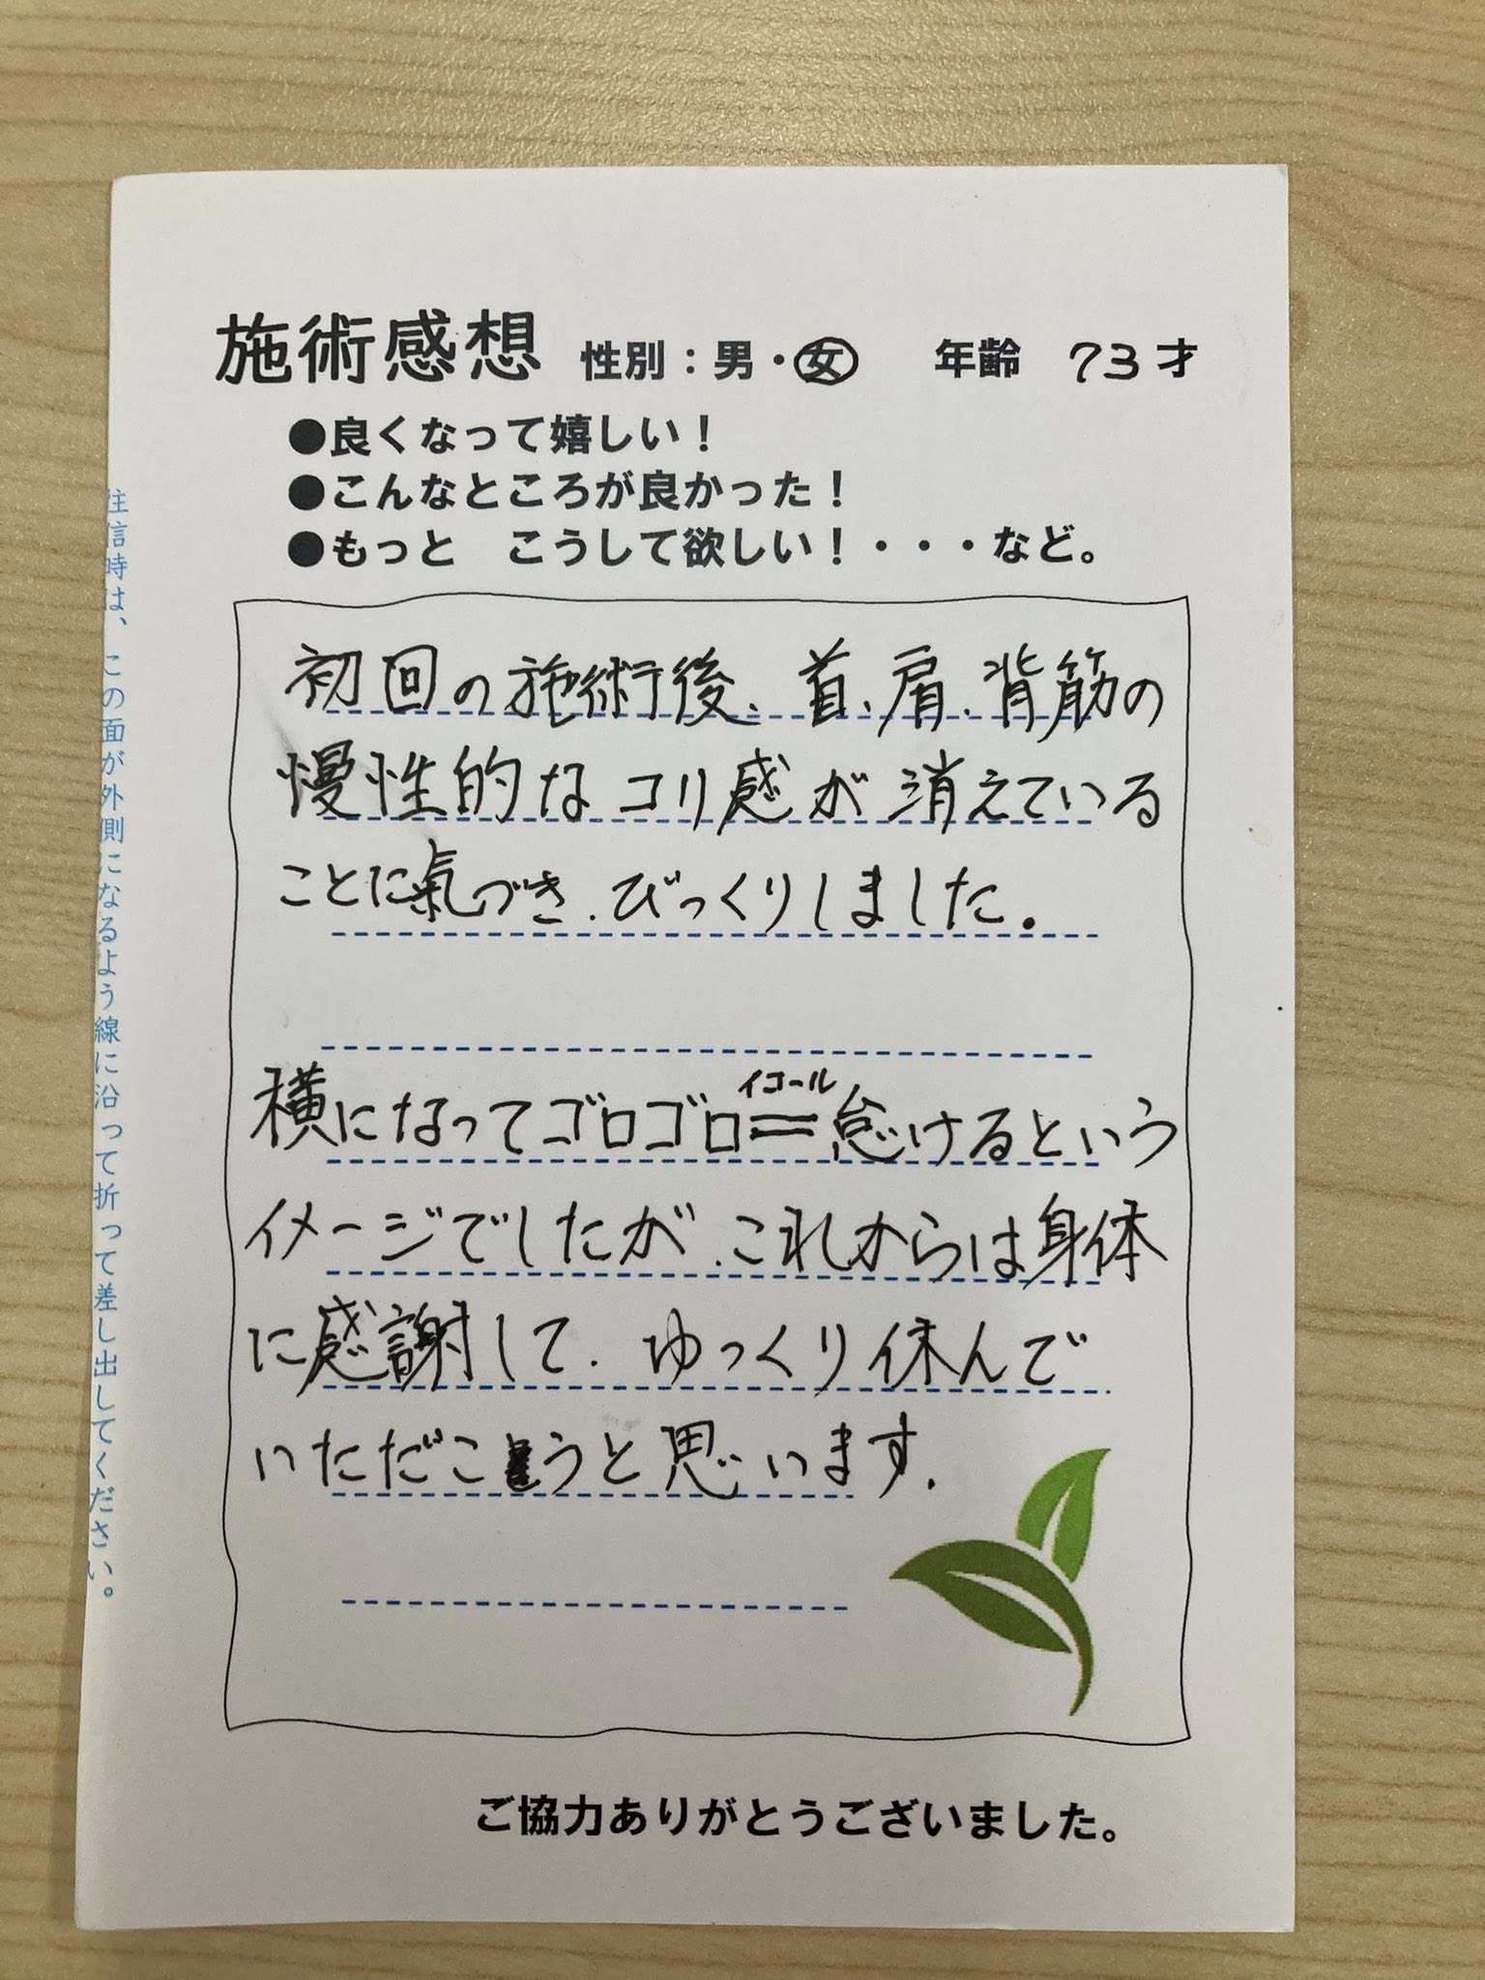 施術感想 性別：男・女 年齢 73才
●良くなって嬉しい！
●こんなところが良かった！
●もっと　こうして欲しい！・・・など。
初回の施術後、首、肩、背筋の
慢性的なコリ感が消えている
ことに氣づき、びっくりしました。
イコール
横になってゴロゴロ＝怠けるという
イメージでしたが、これからは身体
に感謝して、ゆっくり休んで
いただこうと思います。
ご協力ありがとうございました。
信時は、この面が外側になるよう線に沿って折って差し出してください。